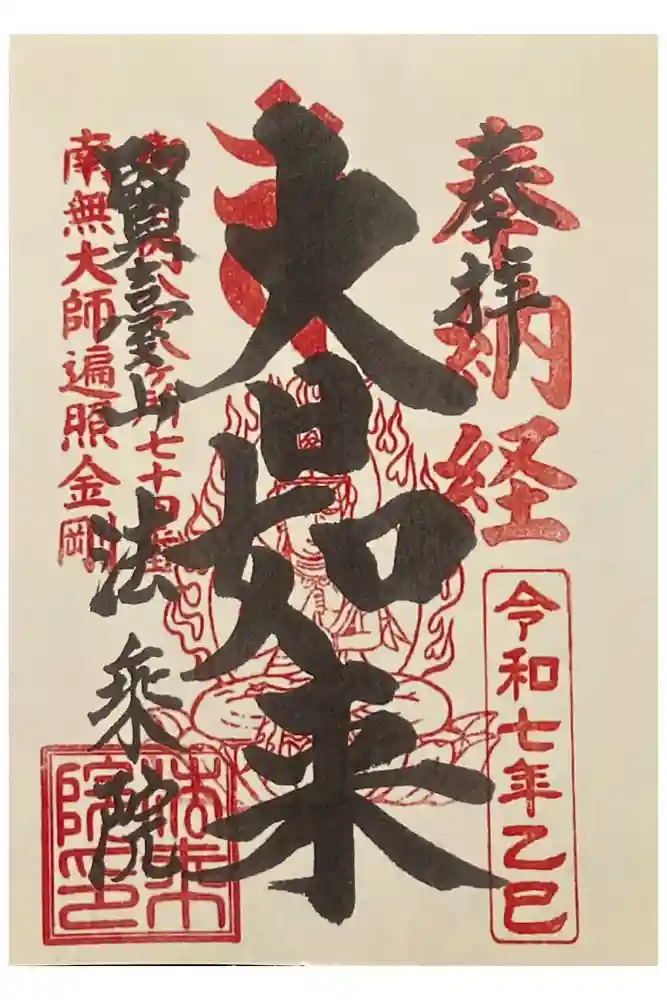 奉拝
納経
令和七年乙巳
大日如来
賢臺山 法乗院
南無大師遍照金剛
法乗院印